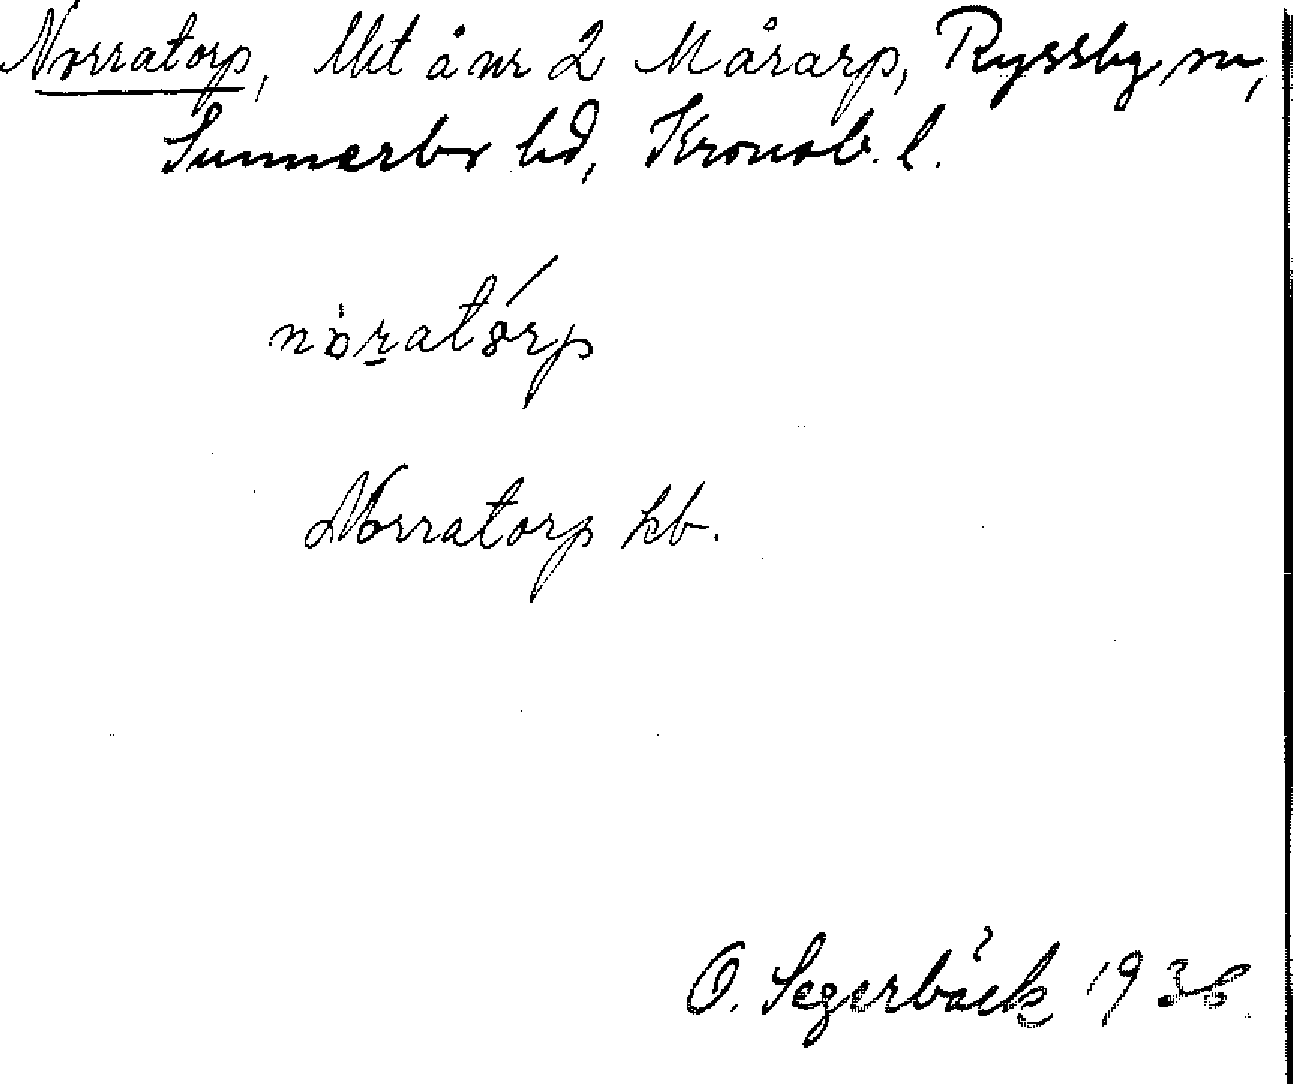 Norratorp, lht å nr 2 Mårarp, Ryssby sn,
Sunnerbo hd, Kronob. l.
nòratórp
Norratorp kb.
O. Segerbäck 1936